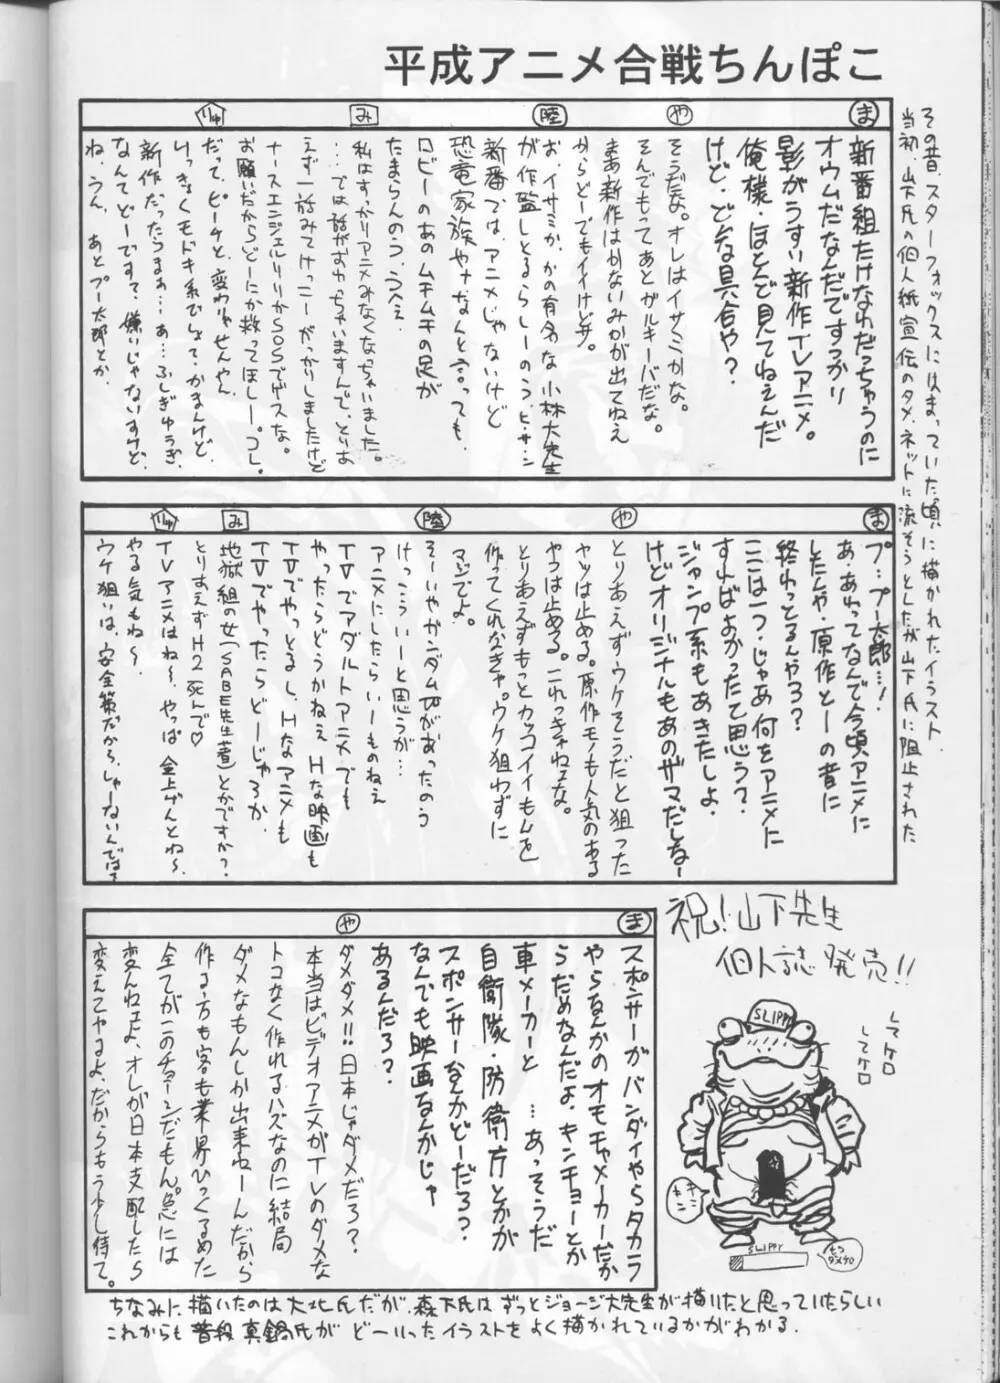 平成アニメ合戦ちんぽこ
その昔、スターフォックスにはまっていた頃に描かれたイラスト
当初、山下氏の個人紙宣伝のタメ、ネットに流そうとしたが山下氏に阻止された
ま
新番組だけなわだっちゅうのに
オウムだなんだですっかり
影がうすい新作TVアニメ。
俺様・ほとんど見てねえんだ
けど・どんな具合や？
や
そうだな。オレはイサミかな。
そんでもってあとガルキーバだな。
まあ新作はかないみかが出てねえ
からどーでもイイけどサ。
陸
お、イサミか、かの有名な小林大先生
が作監しとるらしーのう、ヒ・サ・シ
新番では、アニメじゃないけど
恐竜家族やナなんと言っても、
ロビーのあのムチムチの足が
たまらんのう、うへえ。
み
私はすっかりアニメみなくなっちゃいました。
…では話がおわっちゃいますんで、とりあ
えず一話みてけっこーがっかりしましたけど
ナースエンジェルりりかSOSでゲスな。
お願いだからどーにか救ってほしー。コレ。
りゅ
だって、ピーチと、変わりゃせんやん、
けっきょくモドキ系でしょて・かまんけど、
新作だったらまぁ…あ…ふしぎゆうぎ、
なんてどーですて、嫌いじゃないすけど、
ね、うん、あとプー太郎とか、
ま
プ…プー太郎…！
あ・あれってなんで今頃アニメに
したんや・原作とーの昔に
終わっとるんやろ？
ここは一つ・じゃあ何をアニメに
すればよかったて思う？
ジャンプ系もあきたしよ、
けどオリジナルもあのザマだしなー
や
とりあえずウケそうだと狙った
ヤツは止める。原作モノも人気のある
ヤツは止める。これっきゃねェな。
とりあえずもっとカッコイイもんを
作ってくれなきゃ。ウケ狙わずに
マジでよ。
陸
そーいやガンダムでがあったのう
けっこういーと思うが…
アニメにしたらいーものねえ
TVでアダルトアニメでも
やったらどうかねぇHな映画も
TVでやっとるし、Hなアニメも
TVでやったらどーじゃろか、
み
地獄組の女(SABE先生著)とかですか？
とりあえずH2死んで♡
りゅ
TVアニメはね〜、やっぱ金上げんとね〜、
やる気もね〜
ウケ狙いは、安全策だから、しゃーないんでは？
ま
スポンサーがバンダイやらタカラ
やらなんかのオモチャメーカーだか
らだめなんだよ、キンチョーとか
車メーカーと…あっそうだ
自衛隊・防衛庁とかが
スポンサーなんかどーだろ？
なんでも映画なんかじゃ
あるんだろ？
や
ダメダメ!!日本じゃダメだろ？
本当はビデオアニメがTVのダメな
トコなく作れるハズなのに結局
ダメなもんしか出来ねーんだから
作る方も客も業界ひっくるめた
全てがこのチョーシだもん。急には
変んねェよ、オレが日本支配したら
変えてやるよ、だからもう少し待て。
祝！山下先生
個人誌発売!!
してケロ
してケロ
SLIPPY
SLIPPY
もう
ダメケロ
ちなみに、描いたのは大北氏だが、森下氏はずっとジョージ大先生が描いたと思っていたらしい
これからも普段真鍋氏がどーいったイラストをよく描かれているかがわかる。